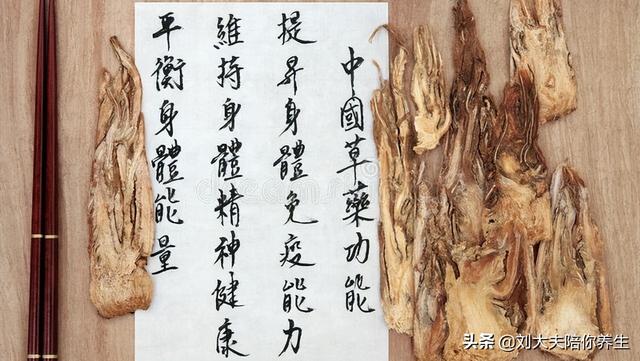 中國草藥功能
提昇身體免疫能力
維持身體精神健康
平衡身體能量
dreamstime
头条 @刘大夫陪你养生